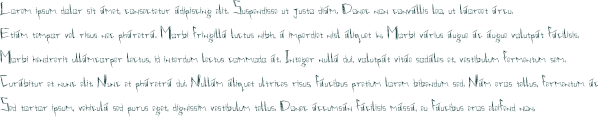 Lorem ipsum dolor sit amet, consectetur adipiscing elit. Suspendisse ut justo diam. Donec non convallis leo, ut laoreet arcu.
Etiam semper vel risus nec pharetra. Morbi fringilla lectus nibh, a imperdiet nisl aliquet in. Morbi varius augue ac augue volutpat facilisis.
Morbi hendrerit ullamcorper lectus, id interdum lectus commodo at. Integer nulla dui, volutpat vitae sodales et, vestibulum fermentum sem.
Curabitur et nunc elit. Nunc et pharetra dui. Nullam aliquet ultrices risus, faucibus pretium lorem bibendum sed. Nam eros tellus, fermentum ac
Sed tortor ipsum, vehicula sed purus eget, dignissim vestibulum tellus. Donec accumsan facilisis massa, eu faucibus eros eleifend non.